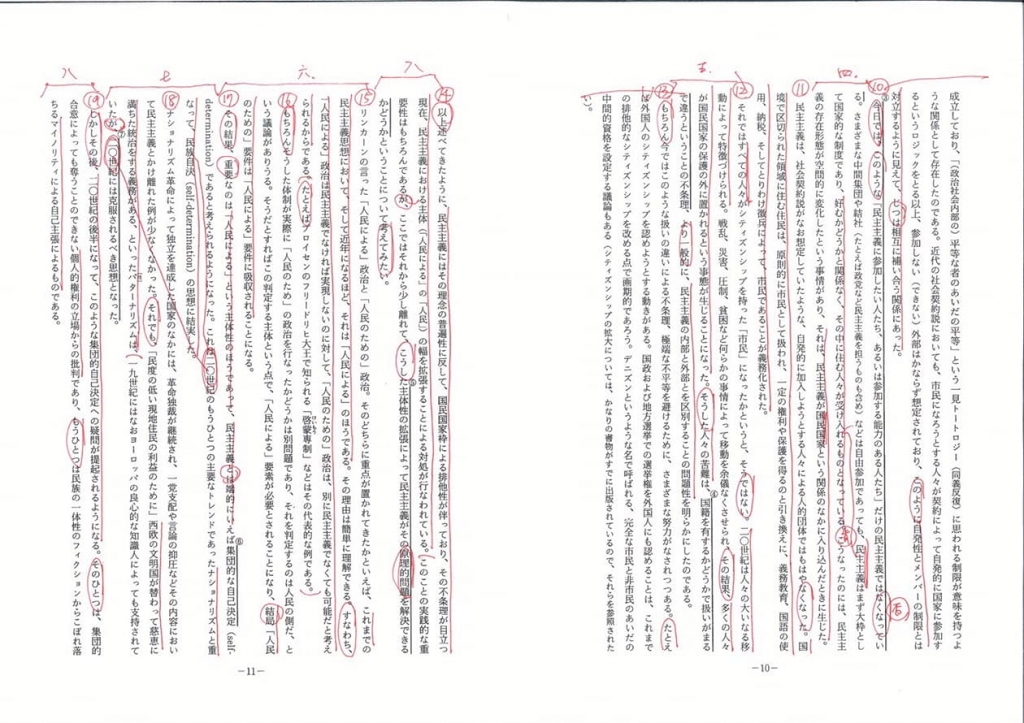 成立しており、「政治社会内部の）平等な者のあいだの平等」という一見トートロジー（同義反復）に思われる制限が意味を持つよ
うな関係として存在したのである。近代の社会契約説においても、市民になろうとする人々が契約によって自発的に国家に参加す
るというロジックをとる以上、参加しない（できない）外部はかならず想定されており、このように自発性とメンバーの制限とは
対立するように見えて、じつは相互に補い合う関係にあった。
⑩
今日では、このような「民主主義に参加したい人たち、あるいは参加する能力のある人たち」だけの民主主義ではなくなってい
る。さまざまな中間集団や結社（たとえば政党など民主主義を担うものも含め）などは自由参加であっても、民主主義はまず大枠とし
て国家的な制度であり、好むかどうかと関係なく、その中に住む人々が受け入れるものとなっている。こうなったのには、民主主
義の存在形態が空間的に変化したという事情があり、それは、民主主義が国民国家という関係のなかに入り込んだときに生じた。
四.
⑪
民主主義は、社会契約説がなお想定していたような、自発的に加入しようとする人々による人的団体ではもはやなくなった。国
境で区切られた領域に住む住民は、原則的に市民として扱われ、一定の権利や保護を得るのと引き換えに、義務教育、国語の使
用、納税、そしてとりわけ徴兵によって、市民であることが義務化された。
⑫
それではすべての人々がシティズンシップを持った「市民」になったかというと、そうではない。二〇世紀は人々の大いなる移
動によって特徴づけられる。戦乱、災害、圧制、貧困など何らかの事情によって移動を余儀なくさせられ、その結果、多くの人々
が国民国家の保護の外に置かれるという事態が生じることになった。そうした人々の苦難は、国籍を有するかどうかで扱いがまる
で違うということの不条理、より一般的に、民主主義の内部と外部とを区別することの問題性を明らかにしたのである。
五.
⑬
もちろん今ではこのような扱いの違いによる不条理、極端な不平等を避けるために、さまざまな努力がなされつつある。たとえ
ば外国人のシティズンシップを認めようとする動きがある。国政および地方選挙での選挙権を外国人にも認めることは、これまで
の排他的なシティズンシップを改める点で画期的であろう。デニズンというような名で呼ばれる、完全な市民と非市民のあいだの
中間的資格を設定する議論もある（シティズンシップの拡大については、かなりの書物がすでに出版されているので、それらを参照された
い）。
—10—
⑭
以上述べてきたように、民主主義にはその理念の普遍性に反して、国民国家枠による排他性が伴っており、その不条理が目立つ
現在、民主主義における主体（「人民による」の「人民」）の幅を拡張することによる対処が行なわれている。このことの実践的な重
要性はもちろんであるが、ここではそれから少し離れて、こうした主体性の拡張によって民主主義がその原理的問題を解決できる
かどうかということについて考えてみたい。
⑮
リンカーンの言った「人民による」政治と「人民のための」政治。そのどちらに重点が置かれてきたかといえば、これまでの
民主主義思想において、そして近年になるほど、それは「人民による」のほうである。その理由は簡単に理解できる。すなわち、
「人民による」政治は民主主義でなければ実現しないのに対して、「人民のための」政治は、別に民主主義でなくても可能だと考え
られるからである。たとえばプロイセンのフリードリヒ大王で知られる「啓蒙専制」などはその代表的な例である。
六.
⑯
もちろんそうした体制が実際に「人民のため」の政治を行なったかどうかは別問題であり、それを判定するのは人民の側だ、と
いう議論がありうる。そうだとすればこの判定する主体という点で、「人民による」要素が必要とされることになり、結局「人民
のための」要件は「人民による」要件に吸収されることになる。
⑰
その結果、重要なのは「人民による」という主体性のほうであって、民主主義とは端的にいえば集団的な自己決定（self-
determination）であると考えられるようになった。これは二〇世紀のもうひとつの主要なトレンドであったナショナリズムと重
なって、民族自決（self-determination）の思想に結実した。
七
⑱
ナショナリズム革命によって独立を達成した国家のなかには、革命独裁が継続され、一党支配や言論の抑圧などその内容におい
て民主主義とかけ離れた例が少なくなかった。それでも、「民度の低い現地住民の利益のために」西欧の文明国が替わって慈恵に
満ちた統治をする義務がある、といったパターナリズムは、（一九世紀にはなおヨーロッパの良心的な知識人によっても支持されて
いたが）二〇世紀には克服されるべき思想となった。
八
⑲
しかしその後、二〇世紀の後半になって、このような集団的自己決定への疑問が提起されるようになる。そのひとつは、集団的
合意によっても奪うことのできない個人的権利の立場からの批判であり、もうひとつは民族の一体性のフィクションからこぼれ落
ちるマイノリティによる自己主張によるものである。
—11—